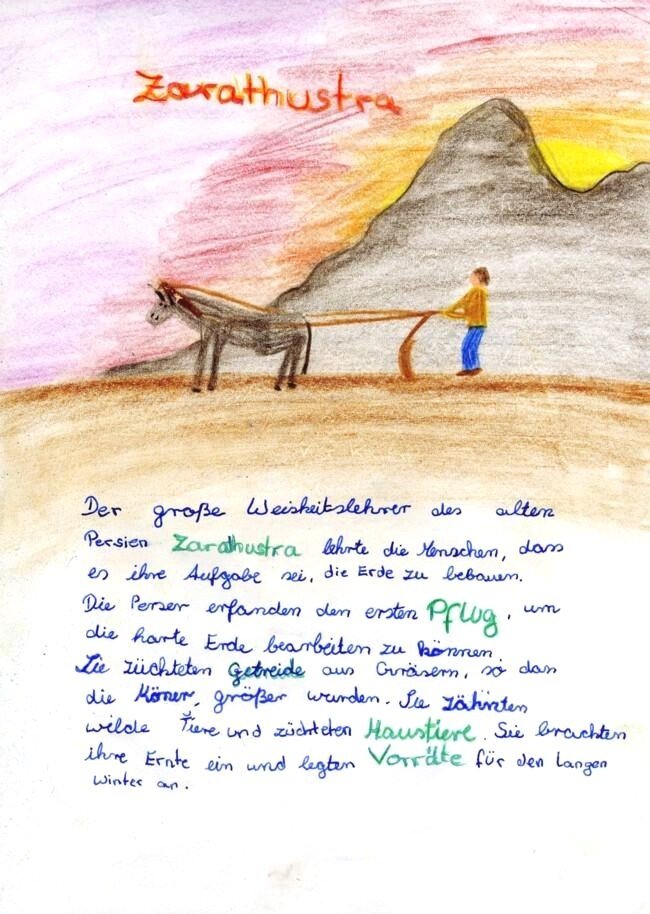 Zarathustra
Der große Weisheitslehrer des alten
Persien Zarathustra lehrte die Menschen, dass
es ihre Aufgabe sei, die Erde zu bebauen.
Die Perser erfanden den ersten Pflug, um
die harte Erde bearbeiten zu können
Sie züchteten Getreide aus Gräsern, so dan
die Köner, größer wurden. Sie zähnten
wilde Tiere und züchteten Haustiere. Sie brachten
ihre Ernte ein und legten Vorräte für den langen
Winter an.